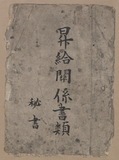 昇給関係書類
秘書